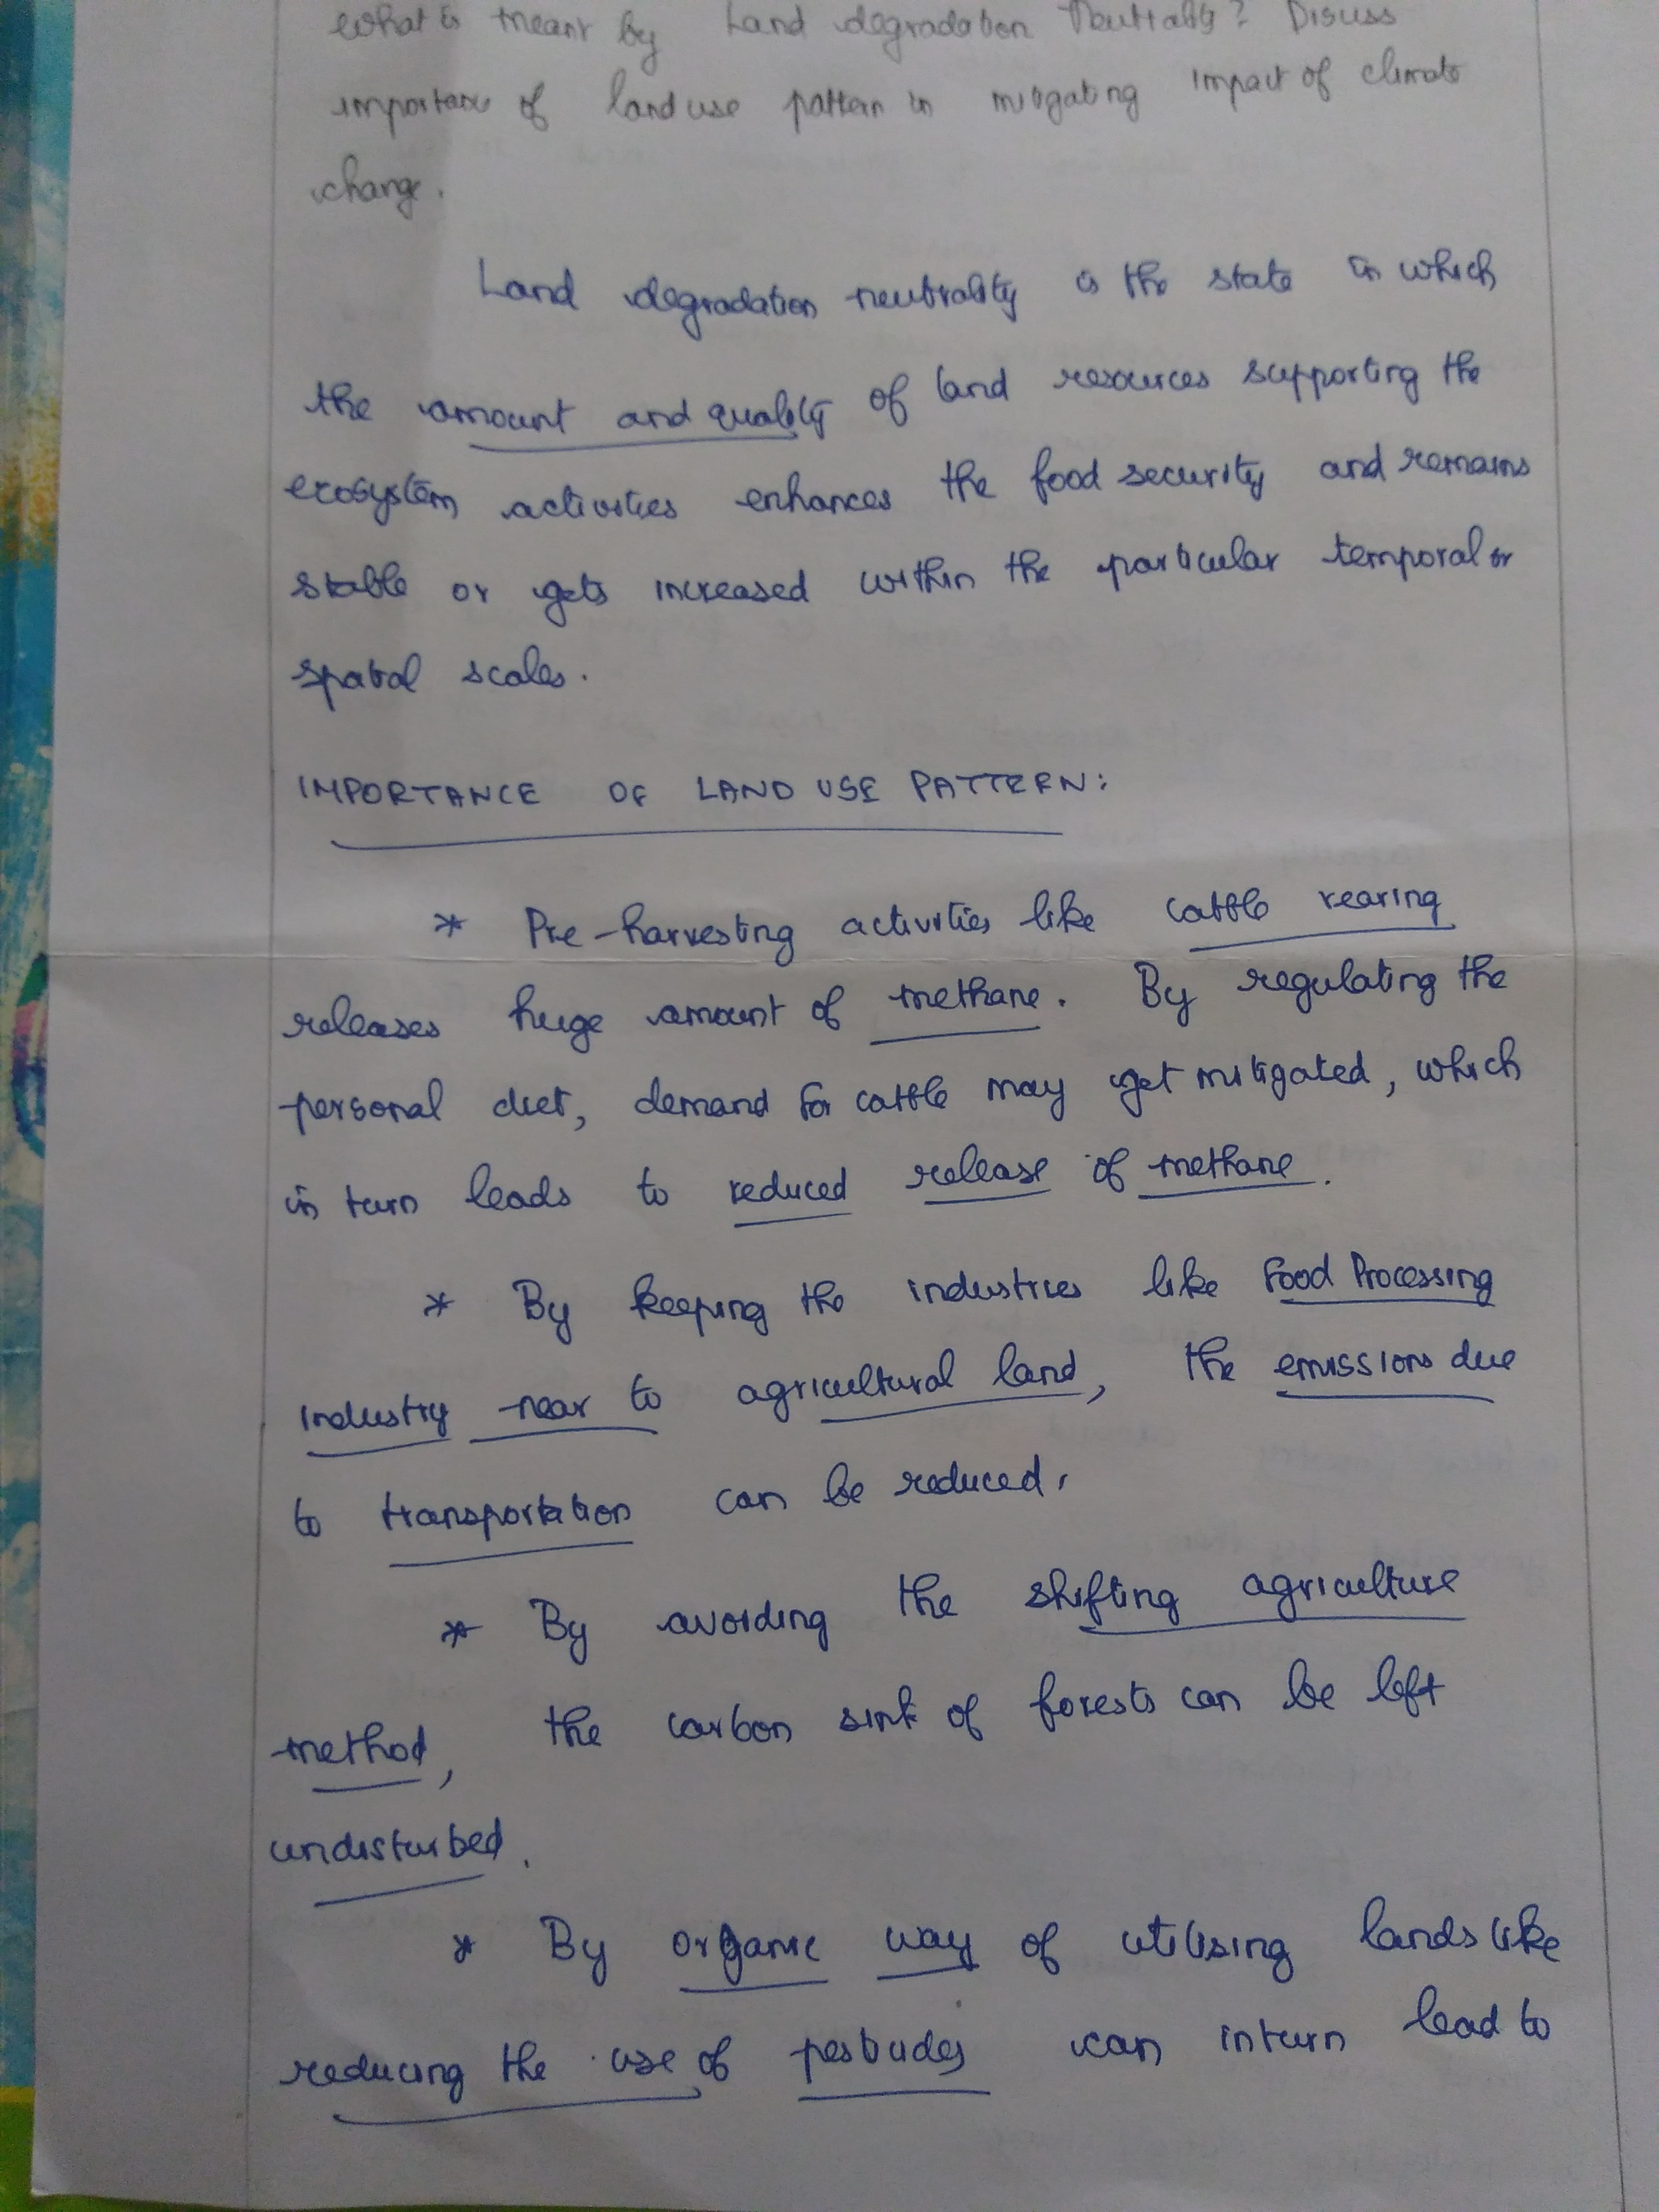 What is meant by Land degradation Neutrality? Discuss
importance of land use pattern in mitigating impact of climate
change.
Land degradation neutrality is the state in which
the amount and quality of land resources supporting the
ecosystem activities enhances the food security and remains
stable or gets increased within the particular temporal or
spatial scales.
IMPORTANCE OF LAND USE PATTERN:
* Pre-harvesting activities like cattle rearing
releases huge amount of methane. By regulating the
personal diet, demand for cattle may get mitigated, which
in turn leads to reduced release of methane.
* By keeping the industries like Food Processing
Industry near to agricultural land, the emissions due
to transportation can be reduced.
* By avoiding the shifting agriculture
method, the carbon sink of forests can be left
undisturbed.
* By organic way of utilising lands like
reducing the use of pesticides can inturn lead to